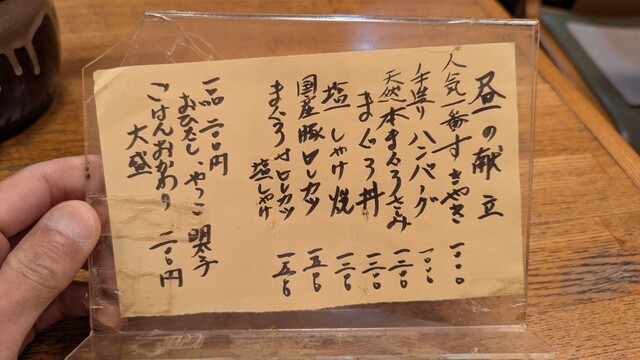 昼の献立
人気一番すきやき 一〇〇〇
手造りハンバーグ 一〇〇〇
天然本まぐろさしみ 一二〇〇
まぐろ丼 一二〇〇
塩しゃけ焼 一二〇〇
国産豚ヒレカツ 一五〇〇
まぐろ付ヒレカツ 一五〇〇
塩しゃけ
一品 二〇〇円
おひたし、やっこ 明太子
ごはんおかわり 二〇〇円
大盛